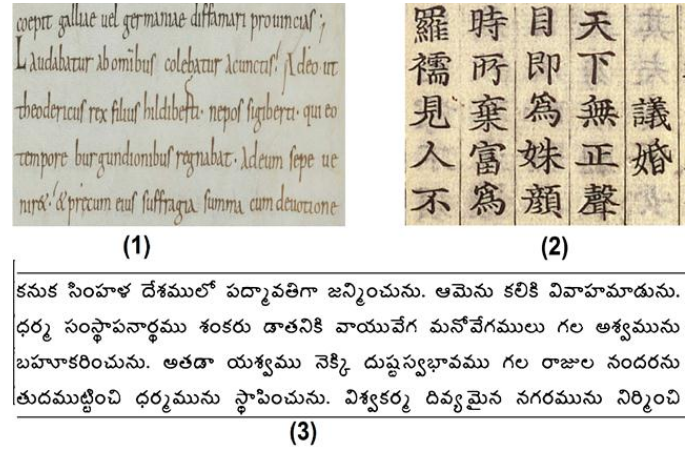 coepit galliae uel germaniae diffamari prouincias ;
Laudabatur ab omibus colebatur acunctis! Adeo ut
theodericus rex filius hildiberti· nepos sigiberti· qui eo
tempore burgundionibus regnabat· Adeum sepe ue
nir&! & pręcum eius suffragia summa cum deuotione
(1)
議婚
天下無正聲
目即爲姝顔
時所棄富爲
羅襦見人不
(2)
కనుక సింహళ దేశములో పద్మావతిగా జన్మించును. ఆమెను కలికి వివాహమాడును.
ధర్మ సంస్థాపనార్థము శంకరు డాతనికి వాయువేగ మనోవేగములు గల అశ్వమును
బహూకరించును. అతడా యశ్వము నెక్కి దుష్టస్వభావము గల రాజుల నందరను
తుదముట్టించి ధర్మమును స్థాపించును. విశ్వకర్మ దివ్యమైన నగరమును నిర్మించి
(3)